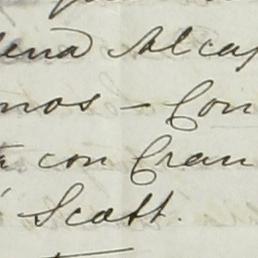 lena Alcay
nos – Con
con Cran
Scott.